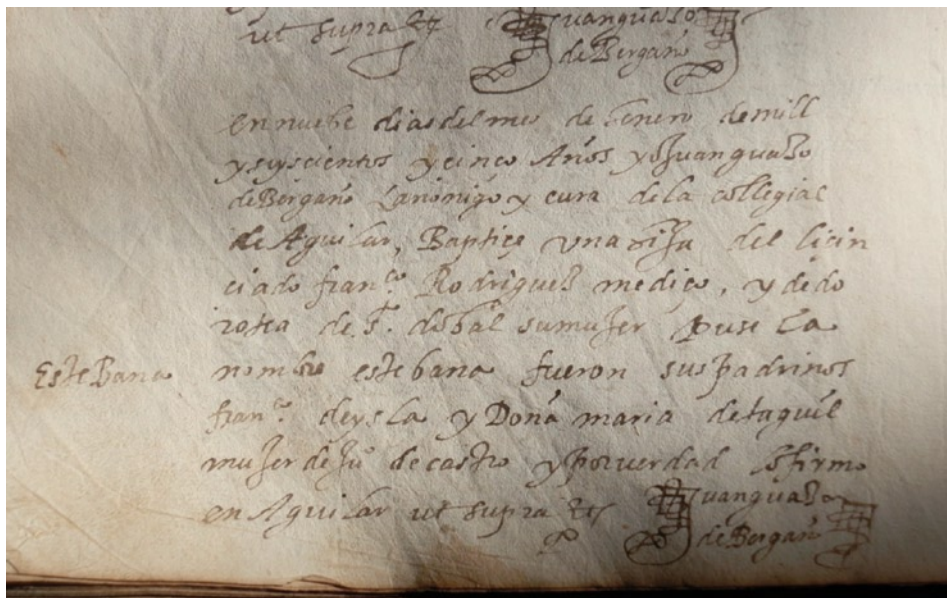 ut supra &c Juan gualo
de Bergaño
en nuebe dias del mes de henero de mill
y seyscientos y cinco Años yo Juan gualo
de Bergaño Canonigo y cura de la collegial
de Aguilar, Baptiçe una hija del licin
ciado fran.co Rodriguez mediço, y de do
rotea de S. dobal su mujer puse la
Estebana nombre estebana fueron sus padrinos
fran.co de ysla y Doña maria de
mujer de Ju.o de castro y por verdad lo firmo
en Aguilar ut supra &c Juan gualo
de Bergaño